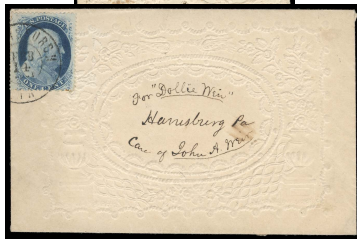 U.S. POSTAGE
For "Dollie Weir"
Harrisburg Pa
Care of John A. Weir